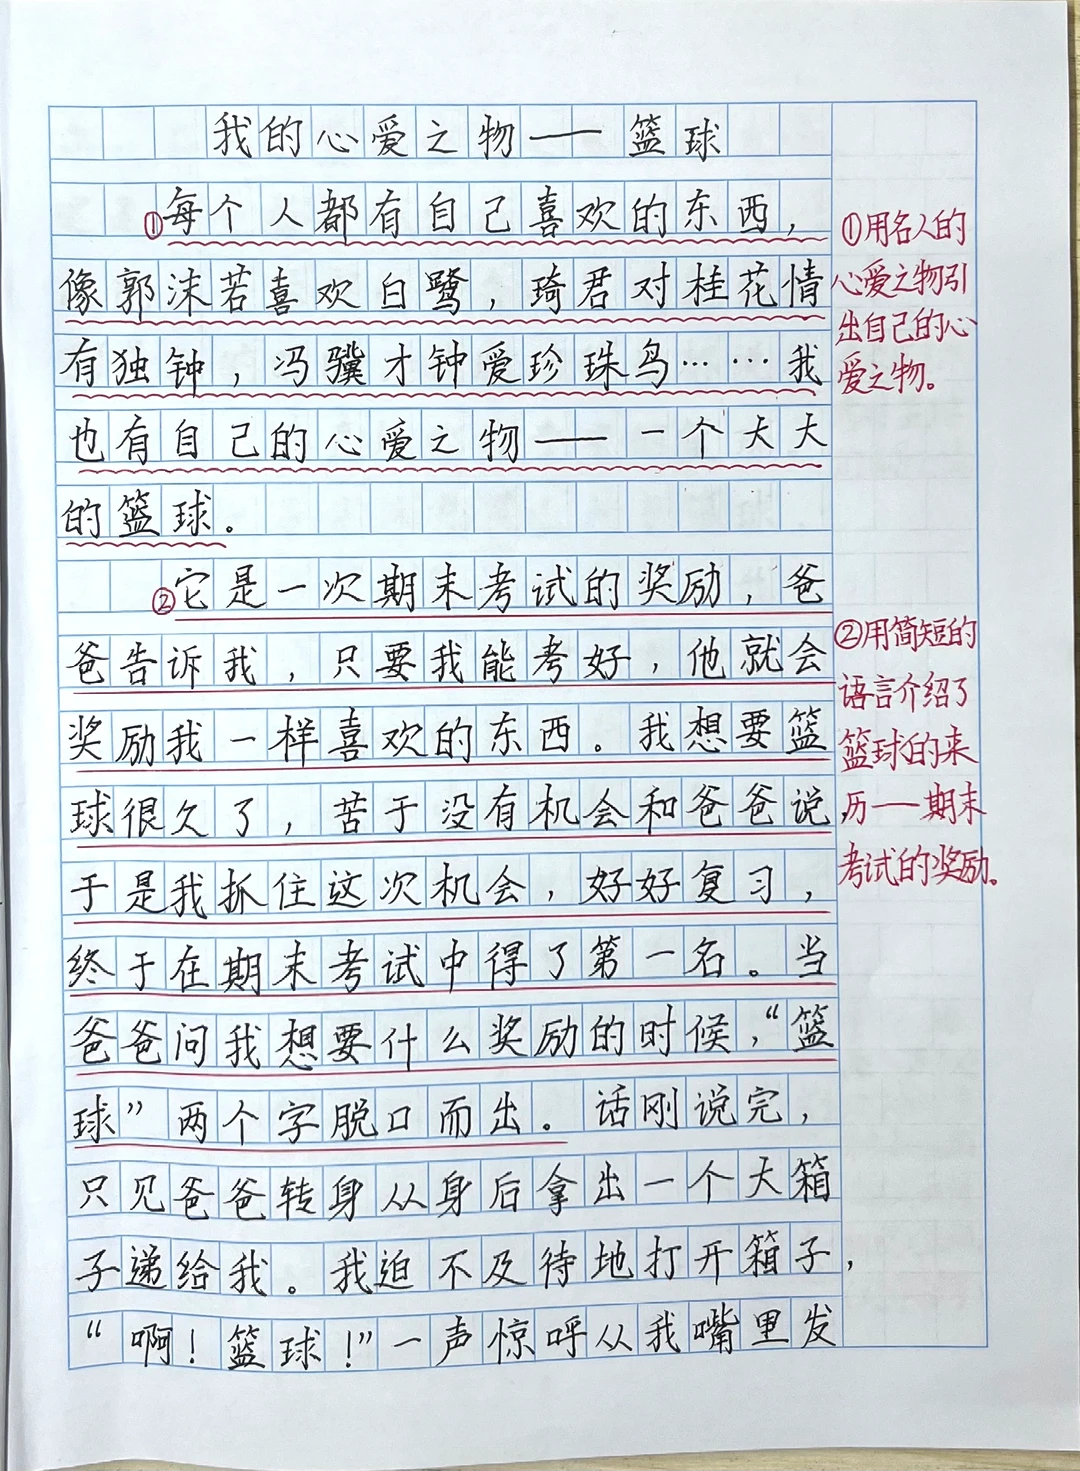 我的心爱之物——篮球
①每个人都有自己喜欢的东西，
像郭沫若喜欢白鹭，琦君对桂花情
有独钟，冯骥才钟爱珍珠鸟……我
也有自己的心爱之物——一个大大
的篮球。
②它是一次期末考试的奖励，爸
爸告诉我，只要我能考好，他就会
奖励我一样喜欢的东西。我想要篮
球很久了，苦于没有机会和爸爸说
于是我抓住这次机会，好好复习，
终于在期末考试中得了第一名。当
爸爸问我想要什么奖励的时候，“篮
球”两个字脱口而出。话刚说完，
只见爸爸转身从身后拿出一个大箱
子递给我。我迫不及待地打开箱子，
“啊！篮球！”一声惊呼从我嘴里发
①用名人的
心爱之物引
出自己的心
爱之物。
②用简短的
语言介绍了
篮球的来
历——期末
考试的奖励。